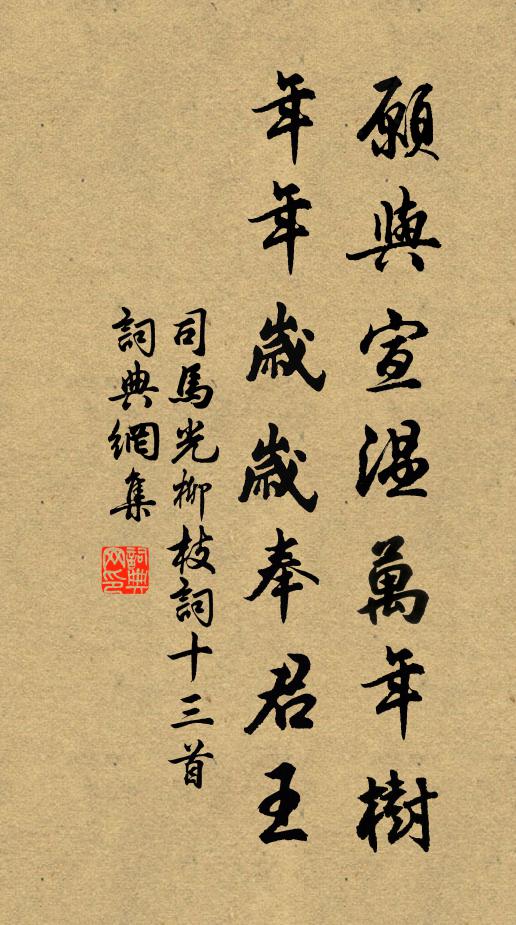 願與宣温萬年樹
年年歲歲奉君王
司馬光柳枝詞十三首
詞典網集
詞典網印